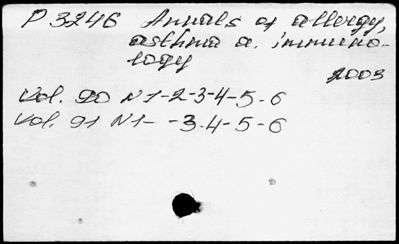 P 3246 Annals of allergy,
asthma a. immuno-
logy
2003
Vol. 90 N 1-2-3-4-5-6
Vol. 91 N 1- -3-4-5-6